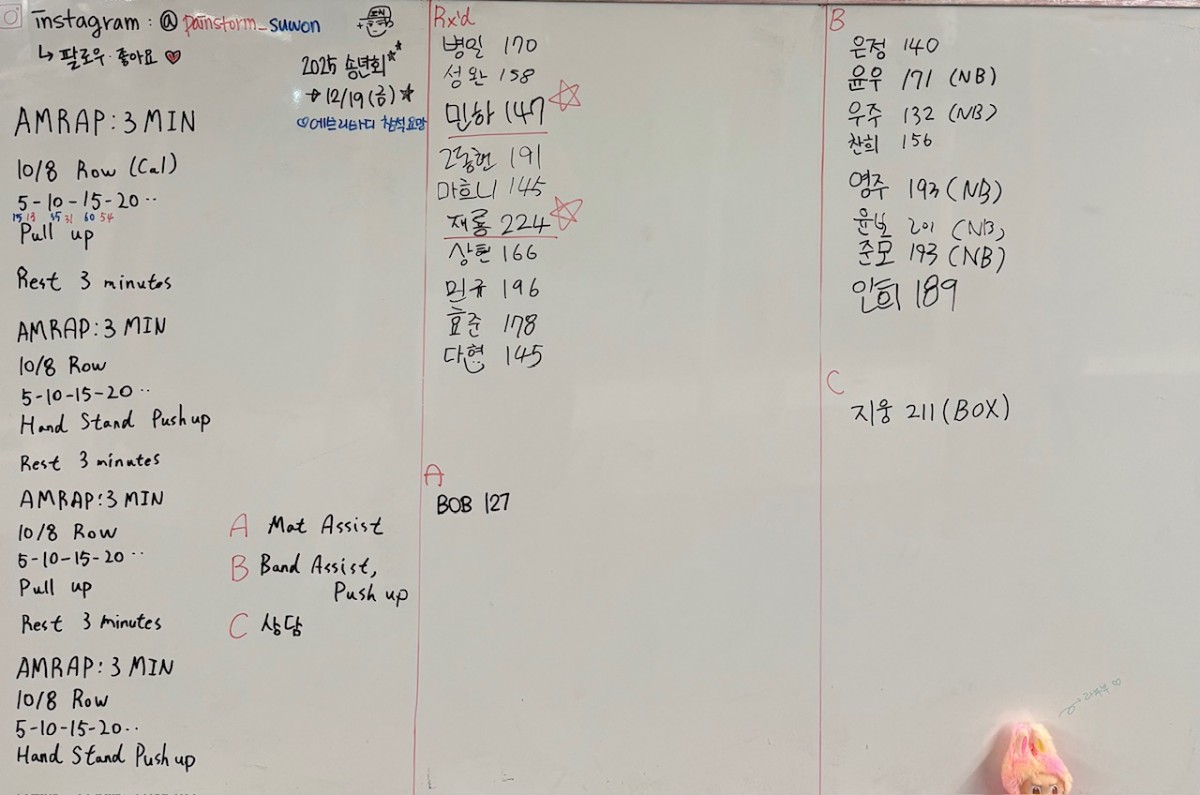 instagram : @painstorm_suwon
↳ 팔로우·좋아요 ♡
2025 송년회**
→ 12/19(금)*
♡에브리바디 참석요망
AMRAP: 3 MIN
10/8 Row (Cal)
5-10-15-20··
15 13 45 31 60 54
Pull up
Rest 3 minutes
AMRAP: 3 MIN
10/8 Row
5-10-15-20··
Hand Stand Push up
Rest 3 minutes
AMRAP: 3 MIN
10/8 Row
5-10-15-20··
Pull up
Rest 3 minutes
AMRAP: 3 MIN
10/8 Row
5-10-15-20··
Hand Stand Push up
A Mat Assist
B Band Assist,
Push up
C 상담
Rx'd
병일 170
성완 158
민하 147 ☆
그동현 191
마흐니 145
재롱 224 ☆
상현 166
민규 196
효준 178
다현 145
A
BOB 127
B
은정 140
윤우 171 (NB)
우주 132 (NB)
찬희 156
영주 193 (NB)
윤보 201 (NB)
준모 193 (NB)
인희 189
C
지웅 211 (BOX)